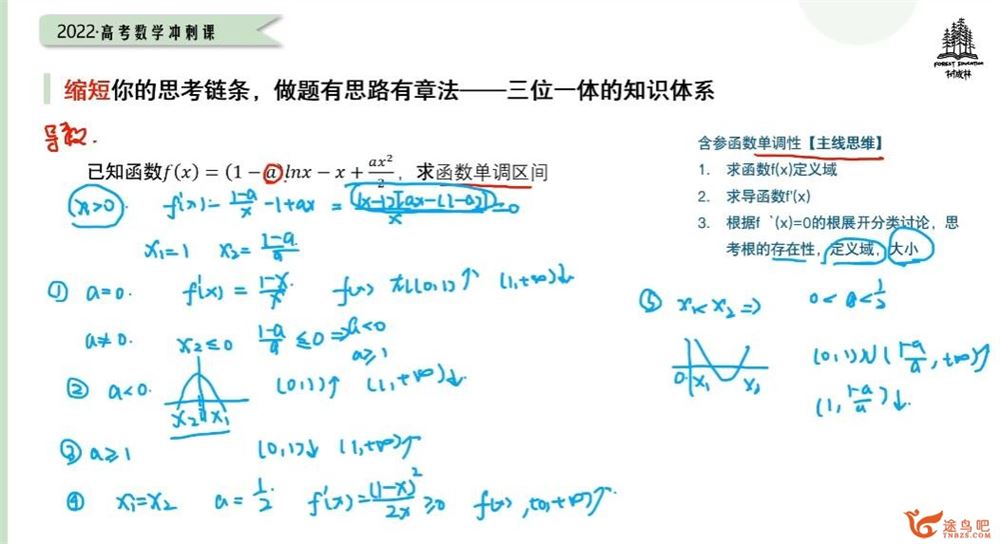 2022·高考数学冲刺课
FOREST EDUCATION
树成林
缩短你的思考链条，做题有思路有章法——三位一体的知识体系
导数.
已知函数f(x) = (1−a)lnx − x + ax²/2，求函数单调区间
(x>0). f'(x)= (1-a)/x -1+ax = (x-1)[ax-(1-a)]/x =0
x₁=1 x₂= (1-a)/a
① a=0. f'(x) = (1-x)/x f(x) 在(0,1)↑ (1,+∞)↓
a≠0. x₂≤0 (1-a)/a ≤0 ⇒ a<0
a≥1
② a<0. (0,1)↑ (1,+∞)↓
x₂ x₁
③ a≥1 (0,1)↓ (1,+∞)↑
④ x₁=x₂ a= 1/2 f'(x)= (1-x)²/2x ≥0 f(x), (0,+∞)↑.
含参函数单调性【主线思维】
1. 求函数f(x)定义域
2. 求导函数f'(x)
3. 根据f `(x)=0的根展开分类讨论，思
考根的存在性，定义域，大小
⑤ x₁<x₂ ⇒ 0<a<1/2
0 x₁ x₂
(0,1)∪((1-a)/a, +∞)↑
(1, (1-a)/a)↓.
途鸟吧
TNBZS.COM